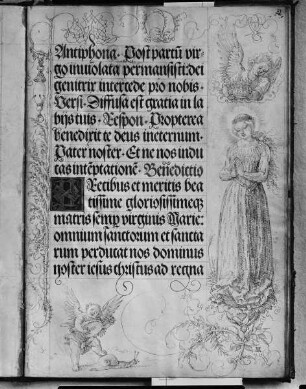 Antiphona. Post partū vir
go inuiolata permansisti: dei
genitrix intercede pro nobis.
Versi. Diffusa est gratia in la
bijs tuis. Respon. Propterea
benedixit te deus ineternum.
Pater noster. Et ne nos indu
cas intēptationē. Benedictio
Precibus et meritis bea
tissime gloriosissimeqz
matris semp virginis Marie:
omnium sanctorum et sancta
rum perducat nos dominus
noster iesus christus ad regna